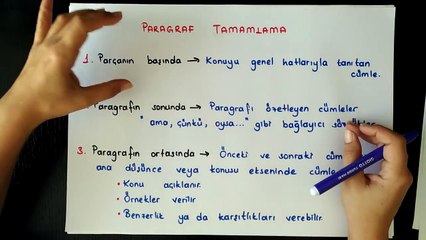 PARAGRAF TAMAMLAMA
1. Parçanın başında → Konuyu genel hatlarıyla tanıtan
cümle.
Paragrafın sonunda → Paragrafı özetleyen cümleler
"ama, çünkü, oysa..." gibi bağlayıcı
3. Paragrafın ortasında → Önceki ve sonraki cüm
ana düşünce veya konusu ekseninde cümle
• Konu açıklanır.
• Örnekler verilir
• Benzerlik ya da karşıtlıkları verebilir.